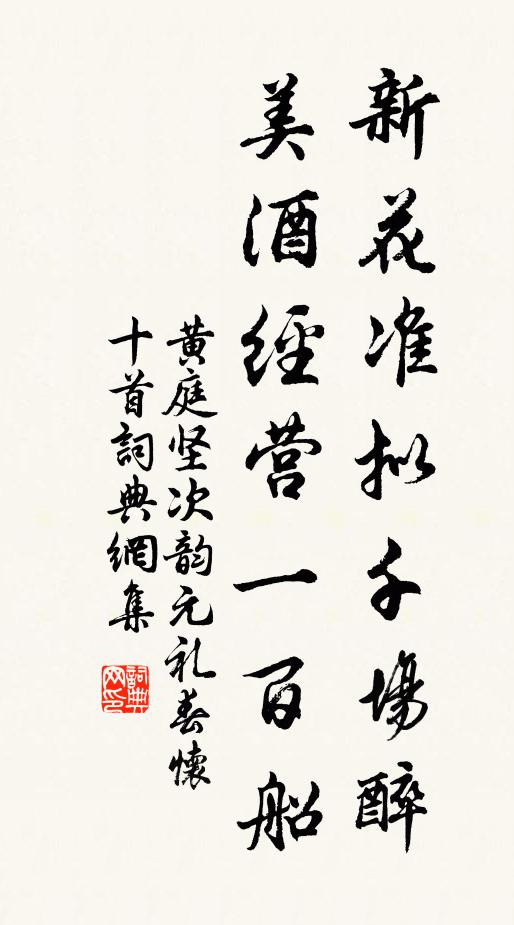 新花准拟千場醉
美酒經营一百船
黄庭坚次韵元礼春懷
十首詞典網集
詞典網印